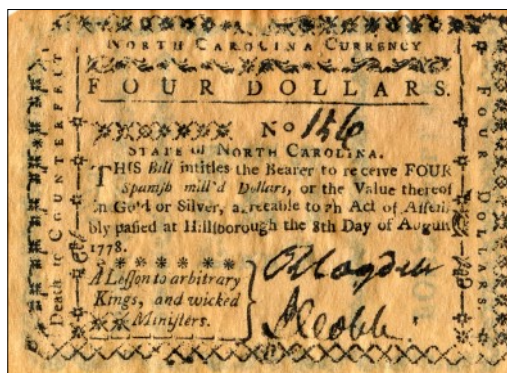 NORTH CAROLINA CURRENCY
FOUR DOLLARS.
No 156
STATE of NORTH CAROLINA.
THIS Bill intitles the Bearer to receive FOUR
Spanish mill'd Dollars, or the Value thereof
in Gold or Silver, agreeable to an Act of Assem
bly passed at Hillsborough the 8th Day of August
1778.
A Lesson to arbitrary
Kings, and wicked
Ministers.
Death to COUNTERFEIT
FOUR DOLLARS